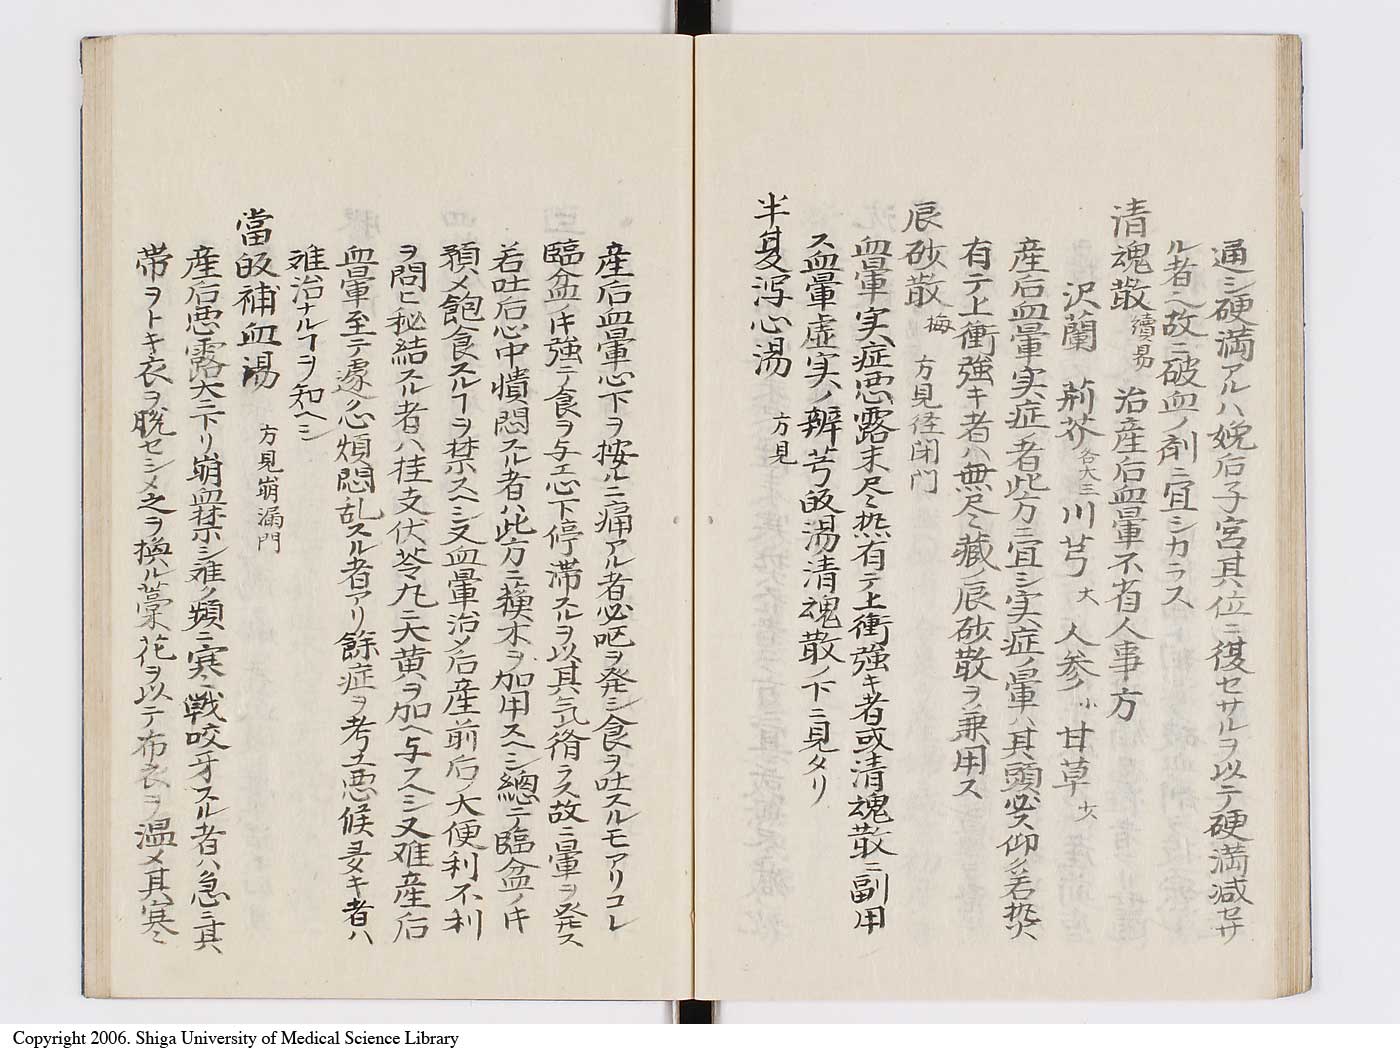 通シ硬満アルハ娩后子宮其位ニ復セサルヲ以テ硬満减セサ
ル者ニ故ニ破血ノ剤ニ宜シカラス
清魂散 續易 治産后血暈不省人事方
沢蘭 荊芥 各大三 川芎 大 人参 小 甘草 少
産后血暈実症者此方ニ宜シ実症ノ暈ハ其頭必ス仰
有テ上衝強キ者ハ無尽藏ノ辰砂散ヲ兼用ス
辰砂散 梅 方見径闭門
血暈ノ実症悪露末尽熱有テ上衝強キ者或清魂散ニ副用
ス血暈虚実ノ辨芎皈湯清魂散ノ下ニ見タリ
半夏瀉心湯 方見
産后血暈心下ヲ按ルニ痛アル者必呕ヲ発シ食ヲ吐スルモアリコレ
臨盆ノキ強テ食ヲ与エ心下停滞スルヲ以其気 ラス故ニ暈ヲ発ス
若吐后心中憒悶スル者ハ此方ニ蘓木ヲ加用スヘシ總テ臨盆ノキ
預メ飽食スルヿヲ禁スヘシ又血暈治メ后産前后ノ大便利不利
ヲ問ヒ秘結スル者ハ桂支伏苓丸ニ大黄ヲ加ヘ与スヘシ又难産后
血暈至テ遽急煩悶乱スル者アリ餘症ヲ考エ悪候 キ者ハ
难治ナルヿヲ知ヘシ
當皈補血湯 方見崩漏門
産后悪露大ニ下リ崩血禁シ难ノ類ニ寒ニ戦咬牙スル者ハ急ニ其
帯ヲトキ衣ヲ脱セシメ之ヲ換ル藁花ヲ以テ布衣ヲ温メ其寒
Copyright 2006. Shiga University of Medical Science Library